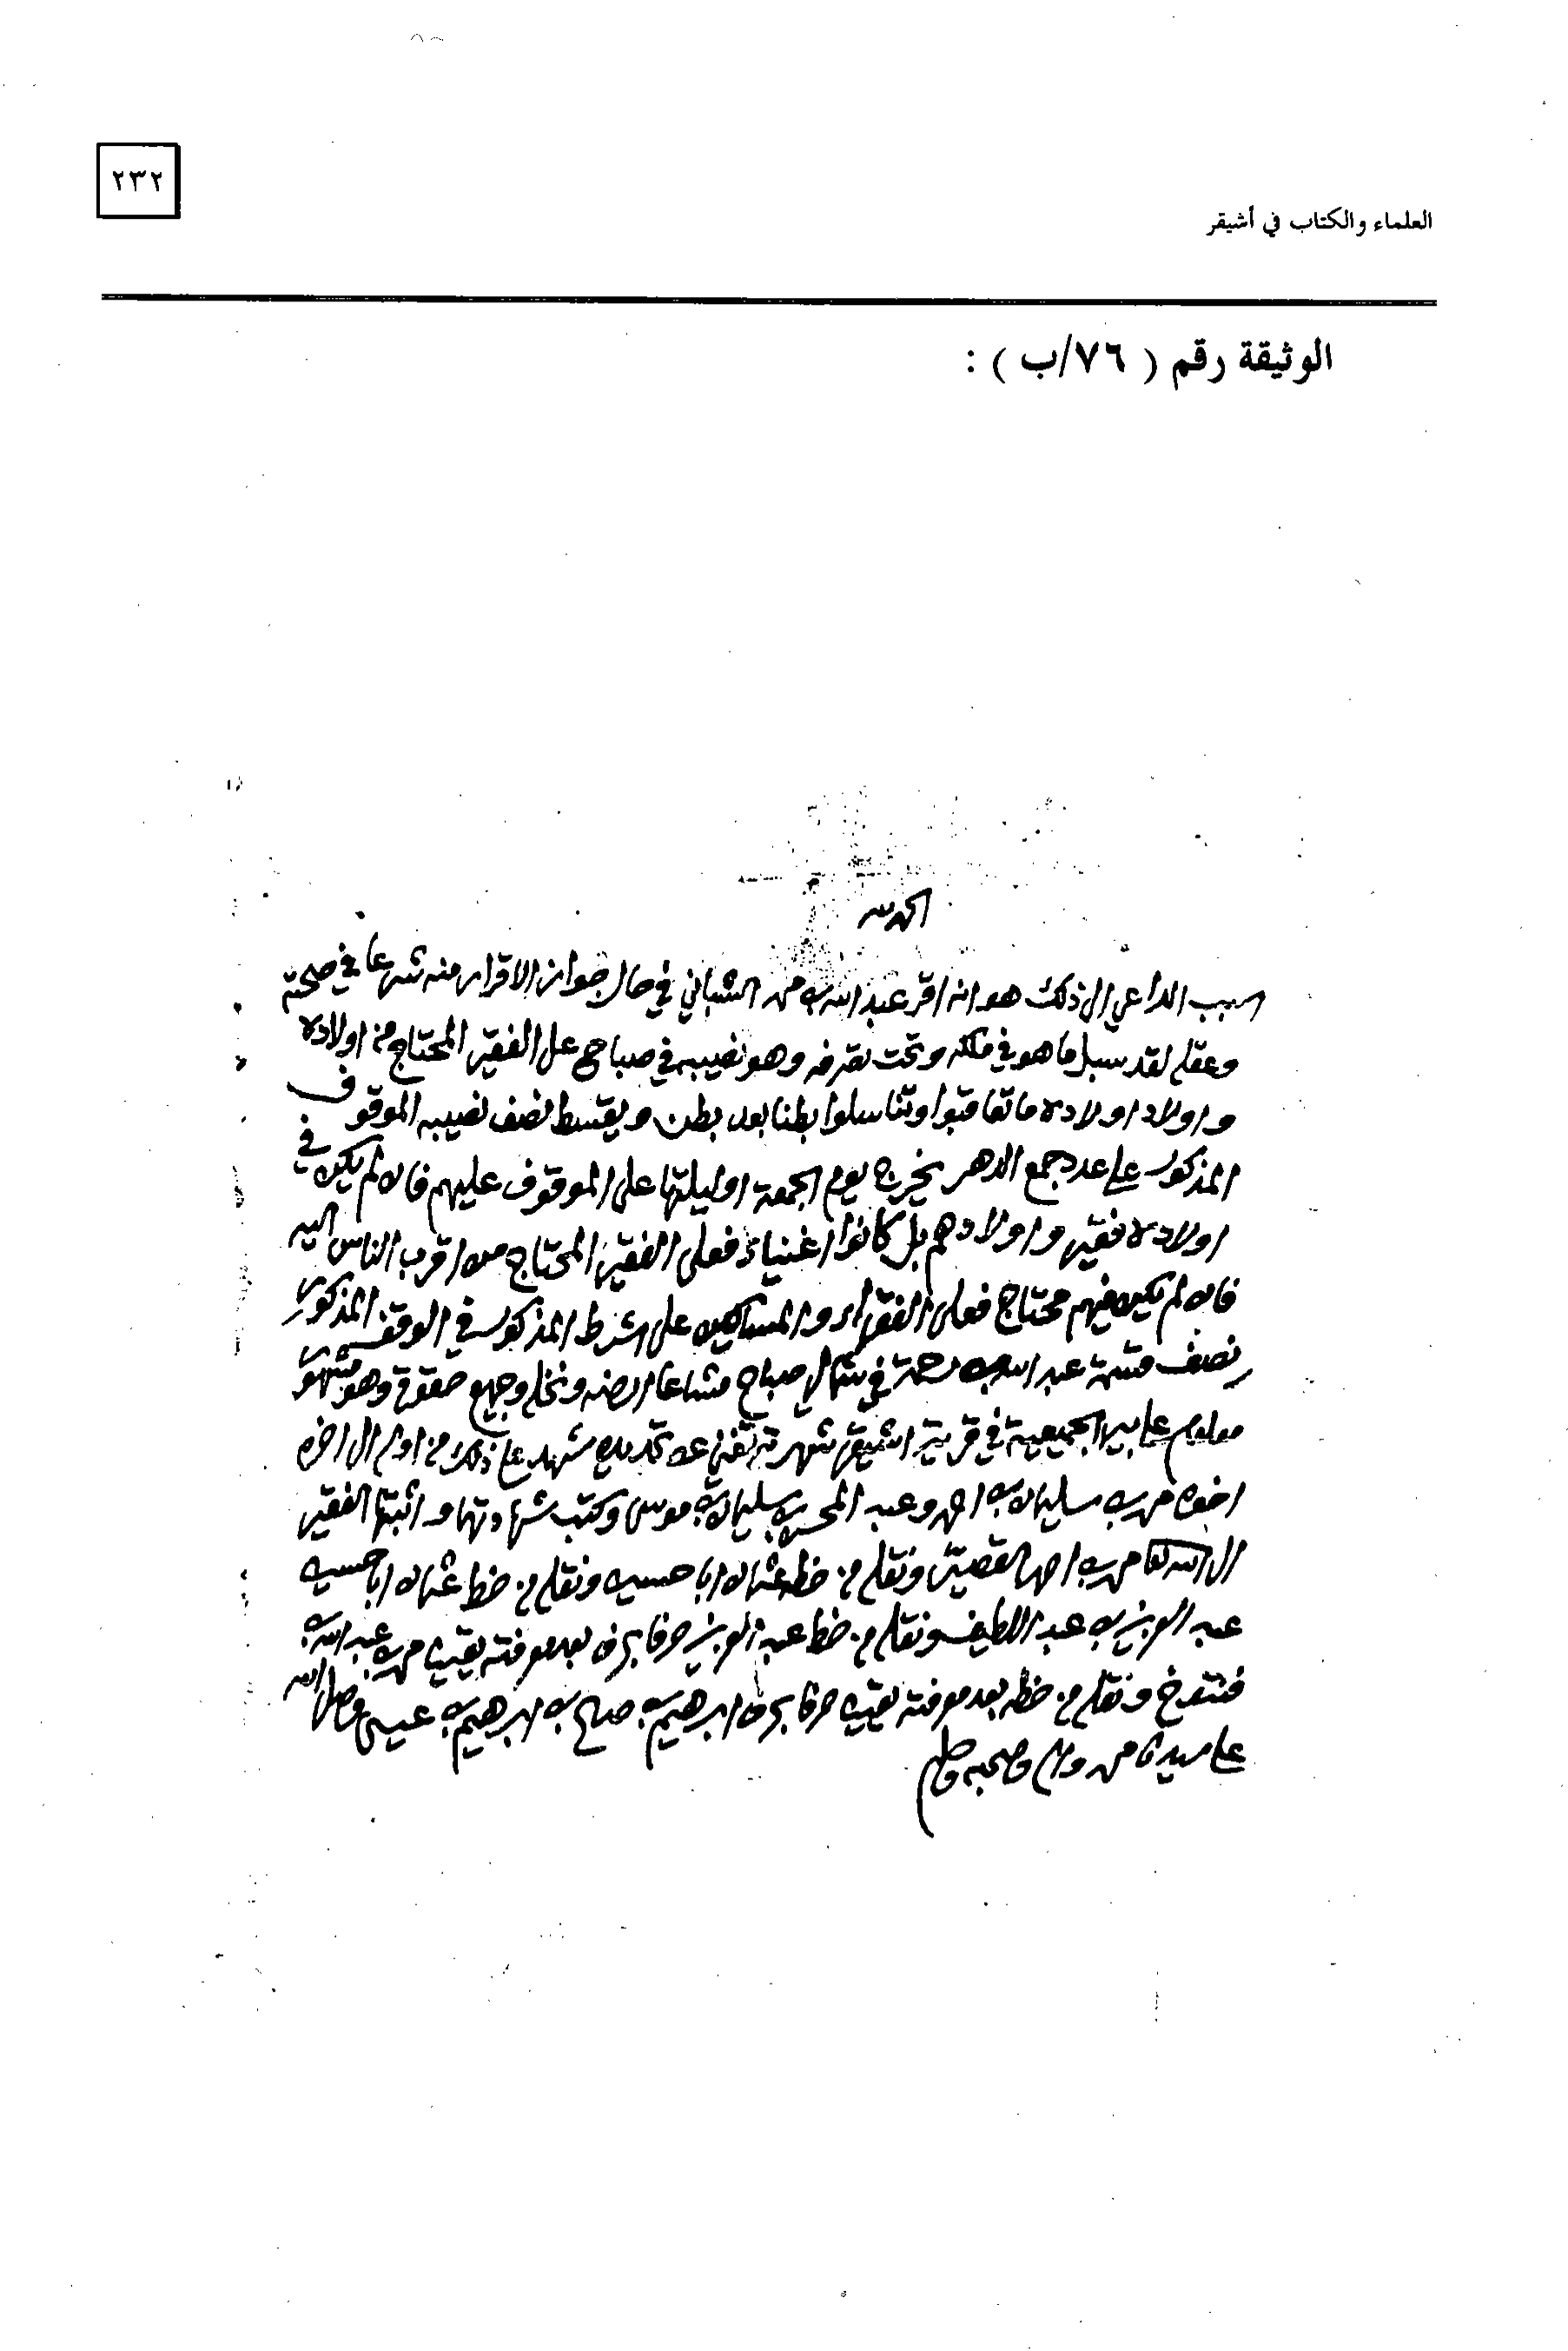 ٢٣٢
العلماء والكتاب في أشيقر
الوثيقة رقم ( ٧٦/ب ) :
الحمد لله
السبب الداعي الى ذلك هو انه اقر عبد الله بن محمد الشباني في حال جواز الاقرار منه شرعا في صحته
وعقله لقد سبل ما هو في ملكه وتحت تصرفه وهو نصيبه في صباح على الفقير المحتاج من اولاده
واولاد اولاده ما تعاقبوا وتناسلوا بطنا بعد بطن ويقسط نصف نصيبه الموقوف
المذكور على عدد جمع الدهر يخرج يوم الجمعة او ليلتها على الموقوف عليهم فان لم يكن في
اولاده فقير واولادهم بل كانوا اغنياء فعلى الفقير المحتاج من اقرب الناس اليه
فان لم يكن فيهم محتاج فعلى الفقراء والمساكين على الشرط المذكور في الوقف المذكور
نصف قسمة عبد الله بن في شمالي صباح مشاعا ارضه ونخله وجميع حقوقه وهو مشهور
معلوم على بير الجميعية في قرية اشيقر شهرته تغني عن تحديده شهد على ذلك من اوله الى اخره
اخوه محمد بن سليمان بن احمد وعبد المحسن بن سليمان بن موسى وكتب شهادتهما واثبتها الفقير
الى الله محمد بن احمد القصير ونقله من خطه عثمان ابا حسين ونقله من خط عثمان ابا حسين
عبد العزيز بن عبد اللطيف ونقله من خط عبد العزيز حرفا بحرف بعد معرفته يقينا محمد بن عبد الله بن
فنتوخ ونقله من خطه بعد معرفته يقينا حرفا بحرف ابرهيم بن صالح بن ابرهيم بن عيسى وصلى الله
على سيدنا محمد واله وصحبه وسلم